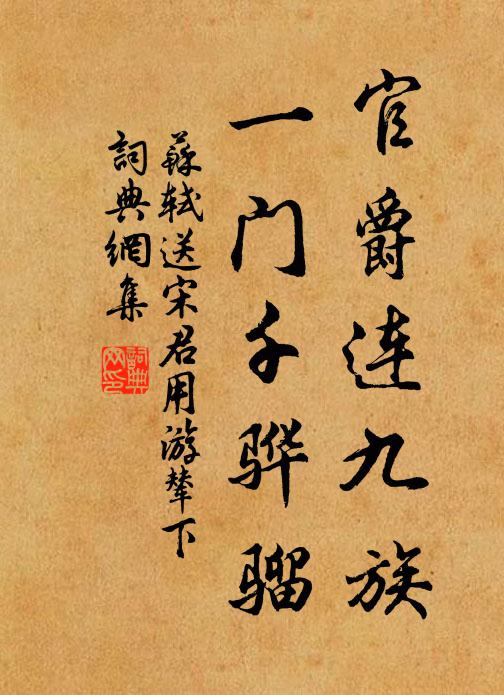 官爵连九族
一门千骅骝
蘇軾送宋君用游輦下
詞典網集
詞典网印